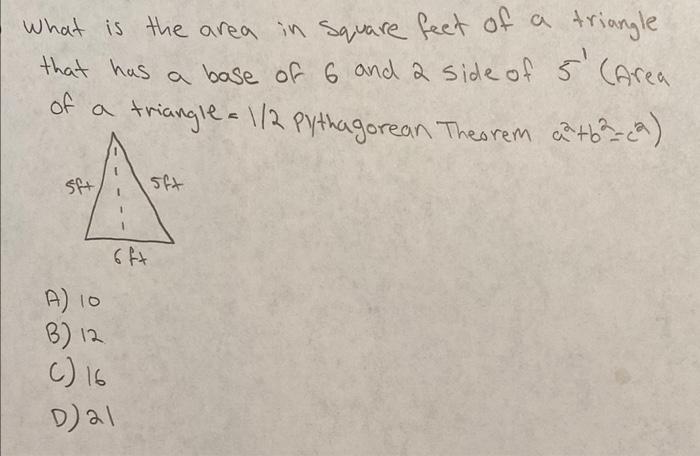 What is the area in square feet of a triangle
that has a base of 6 and 2 side of 5' (Area
of a triangle = 1/2 Pythagorean Theorem a²+b²=c²)
5ft 5ft
6 ft
A) 10
B) 12
C) 16
D) 21